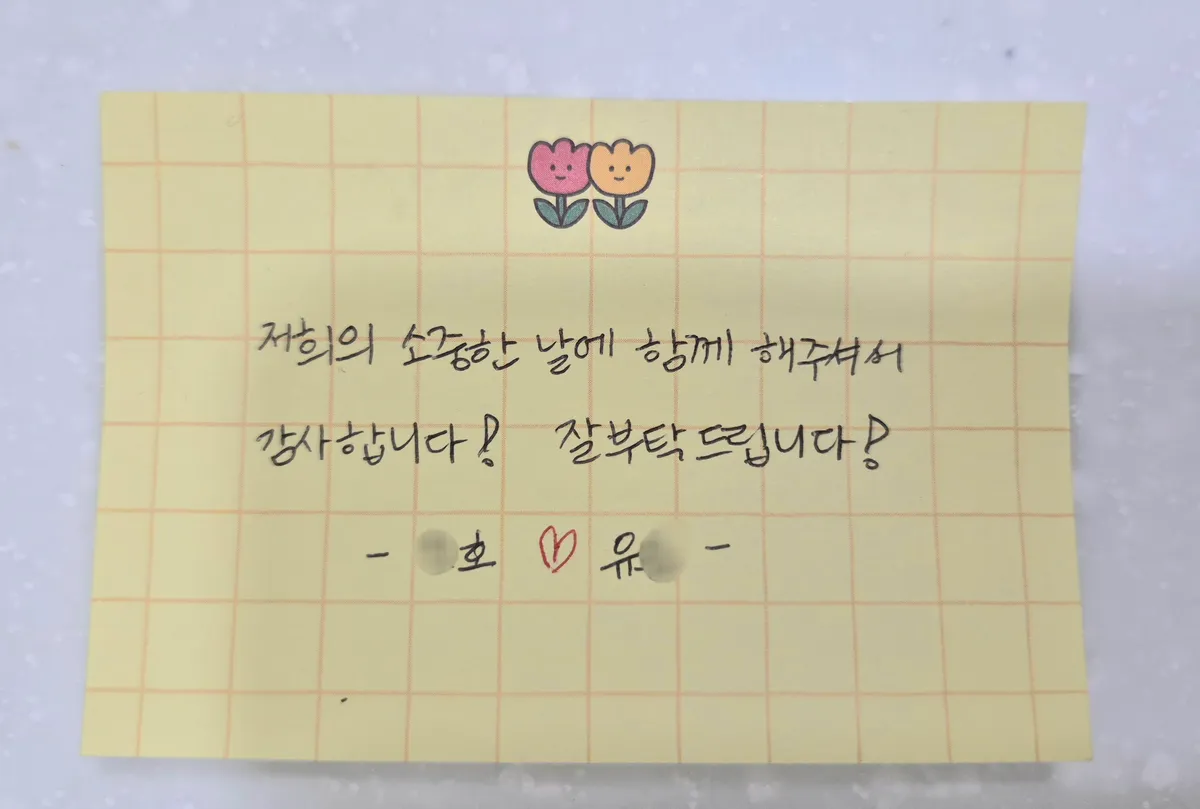 저희의 소중한 날에 함께 해주셔서
감사합니다! 잘부탁드립니다!
- 호 ♡ 유 -